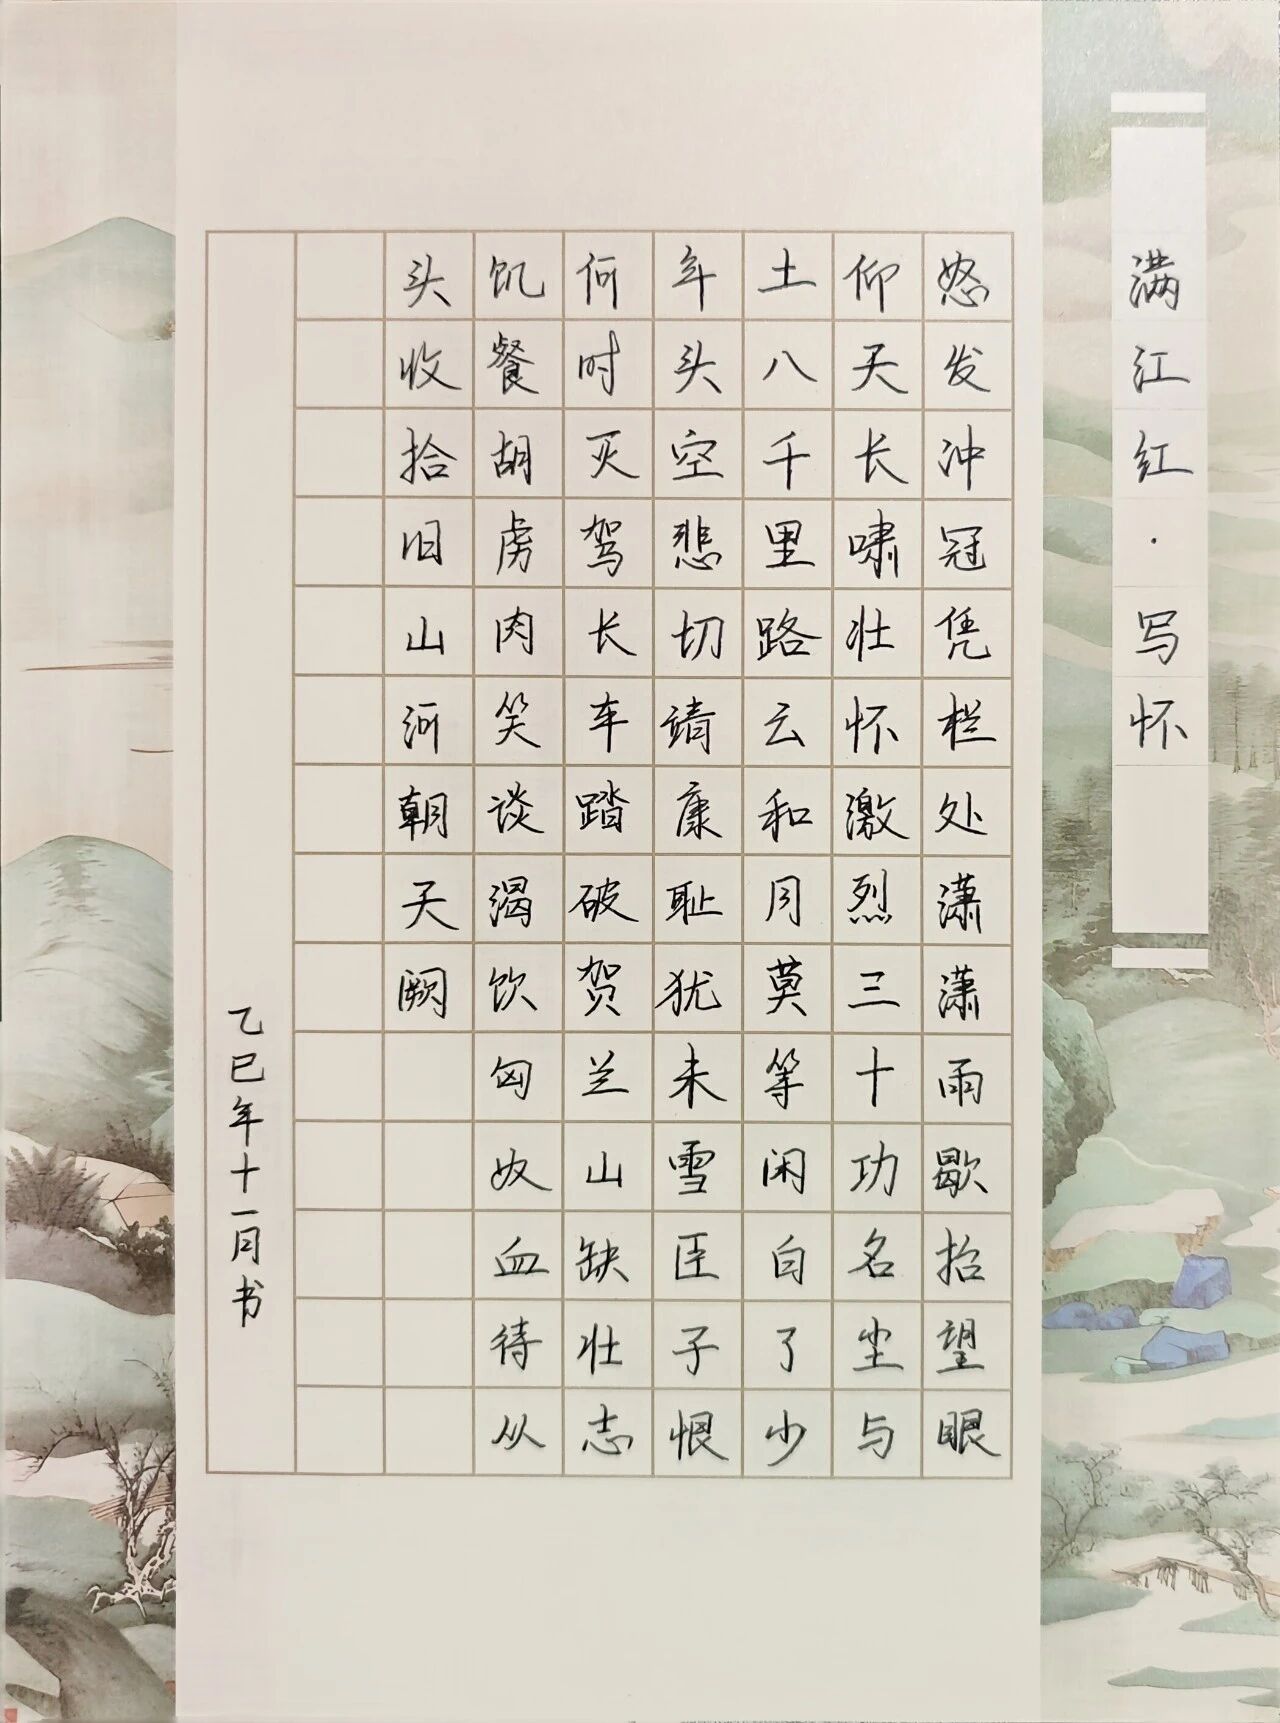 满江红·写怀
怒发冲冠凭栏处潇潇雨歇抬望眼
仰天长啸壮怀激烈三十功名尘与
土八千里路云和月莫等闲白了少
年头空悲切靖康耻犹未雪臣子恨
何时灭驾长车踏破贺兰山缺壮志
饥餐胡虏肉笑谈渴饮匈奴血待从
头收拾旧山河朝天阙
乙巳年十一月书